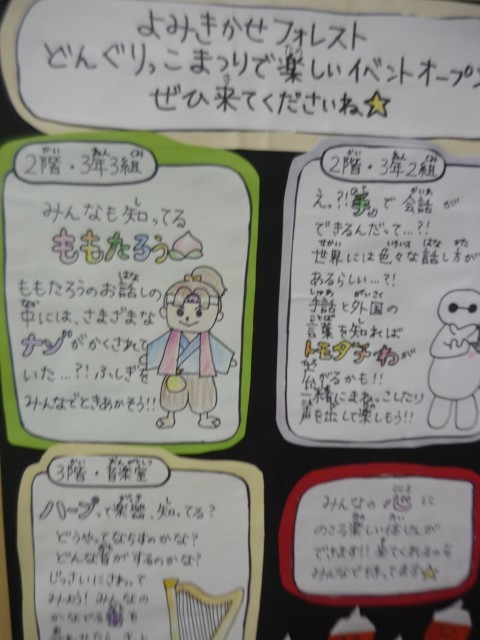 よみきかせフォレスト
どんぐりっこまつりで楽しいイベントオープン
ぜひ来てくださいね☆
2階・3年3組
みんなも知ってる
ももたろう
ももたろうのお話しの
中には、さまざまな
ナゾがかくされて
いた…?! ふしぎを
みんなでときあかそう!!
2階・3年2組
えっ?!「手」で会話が
できるんだって…?!
世界には色々な話し方が
あるらしい…?!
手話と外国の
言葉を知れば
トモダチのわが
広がるかも!!
一緒にまねっこしたり
声を出して楽しもう!!
3階・音楽室
ハープって楽器、知ってる?
どうやってならすのかな?
どんな音がするのかな?
じっさいにさわって
みよう! みんなの
かなでる も
みんなの心に
のこる楽しい
できます!! 来てくれるのを
みんなで待ってます☆